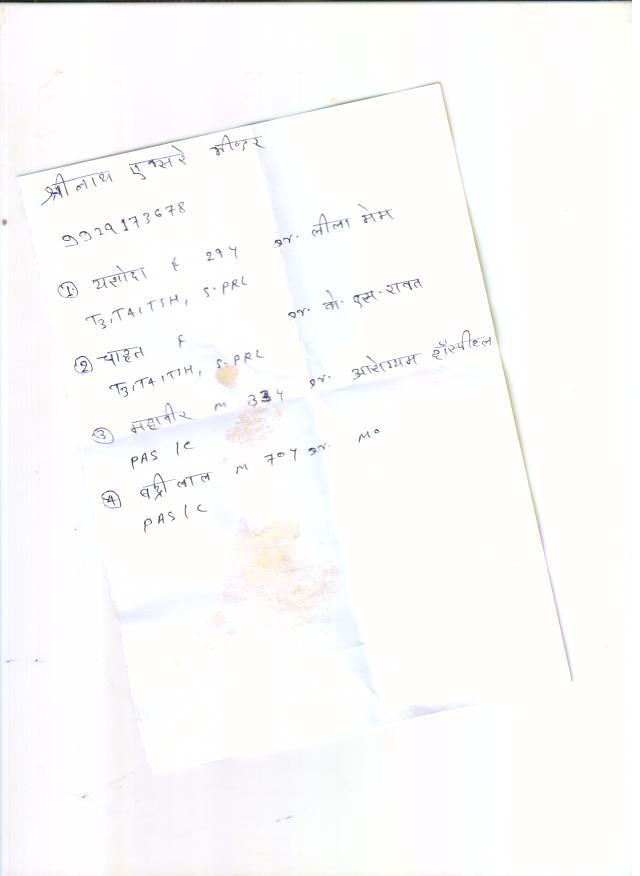 श्रीनाथ एक्सरे सेन्टर
9929173678
① यशोदा F 29Y डा. लीला मेम
T3, T4, TSH, S.PRL
② चाहत F डा. के. एस. रावत
T3, T4, TSH, S.PRL
③ महावीर M 33Y डा. आरोग्यम हॉस्पीटल
PAS / C
④ बद्रीलाल M 70Y डा. Mo
PAS / C